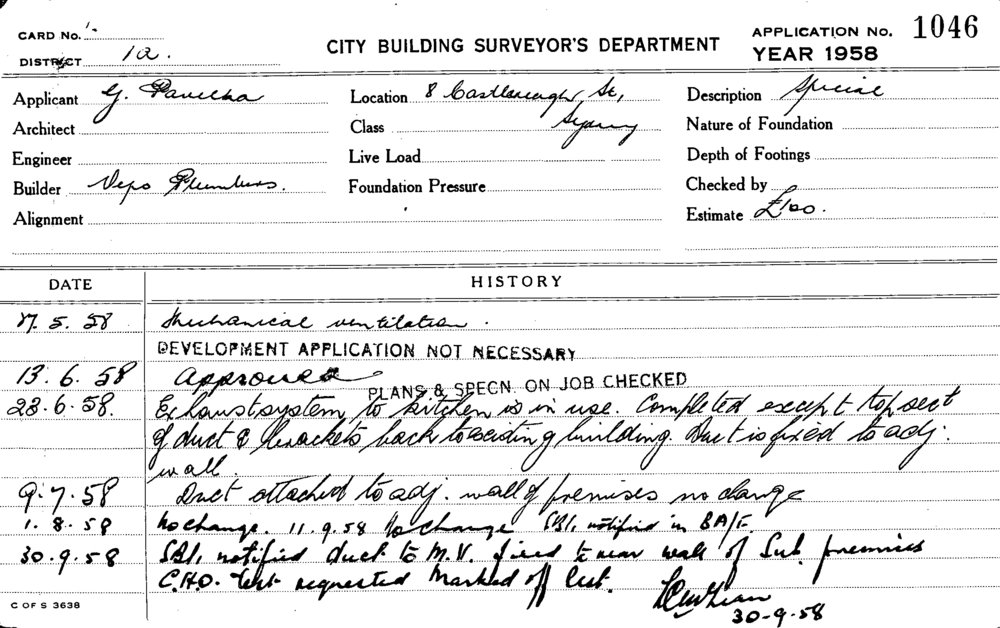 CARD No. 1.
DISTRICT 1a.
CITY BUILDING SURVEYOR'S DEPARTMENT
APPLICATION No. 1046
YEAR 1958
Applicant G.
Location 8 Castlereagh St,
Sydney
Description Special
Architect
Class
Nature of Foundation
Engineer
Live Load
Depth of Footings
Builder Vepo Plumbers.
Foundation Pressure
Checked by
Alignment
Estimate £100.
DATE
HISTORY
5. 58 Mechanical ventilation.
DEVELOPMENT APPLICATION NOT NECESSARY
13. 6. 58 Approved
PLANS & SPECN. ON JOB CHECKED
23.6.58. Exhaust system to kitchen is in use. Completed except top sect
of duct & brackets back to existing building. Duct is fixed to adj.
wall.
9.7.58 Duct attached to adj. wall of premises no change
1. 8. 58 No change. 11.9.58 No change SBI, notified in BA/F.
30.9.58 SBI, notified duct to M.V. fixed to rear wall of Sub. premises
C.H.O. test requested Marked off list.
30-9-58
C OF S 3638